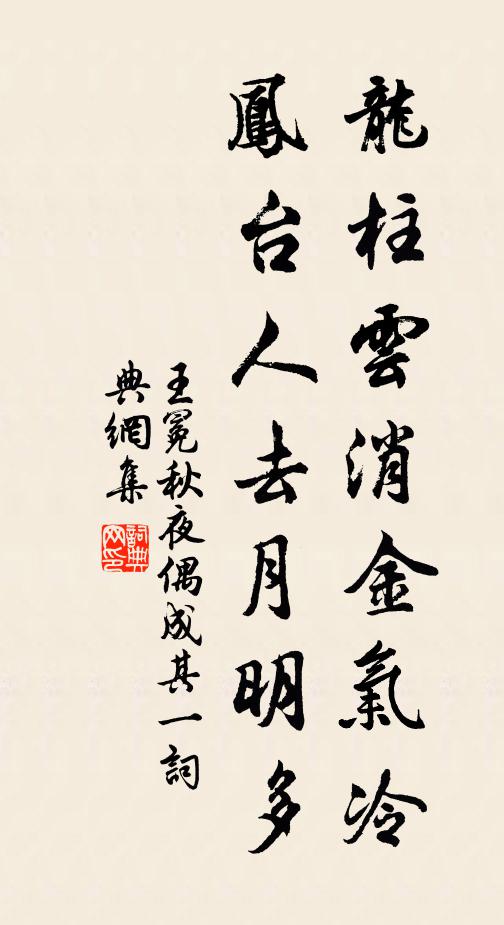 龍柱雲消金氣冷
鳳台人去月明多
王冕秋夜偶成其一詞
典網集
詞典
网印